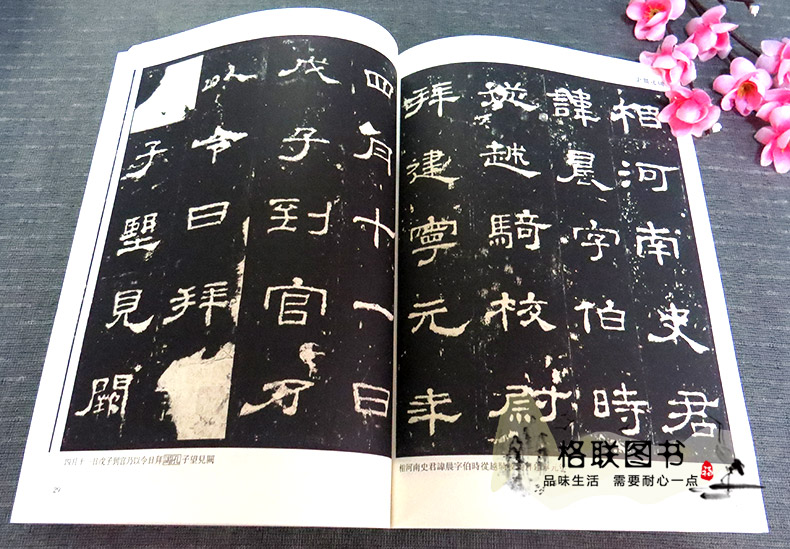 相河南史君
諱晨字伯時
從越騎校尉
拜建寧元年
四月十一日
戊子到官乃
以令日拜
子望見闕
相河南史君諱晨字伯時從越
四月十一日戊子到官乃以令日拜謁孔子望見闕
29
格联图书
品味生活 需要耐心一点